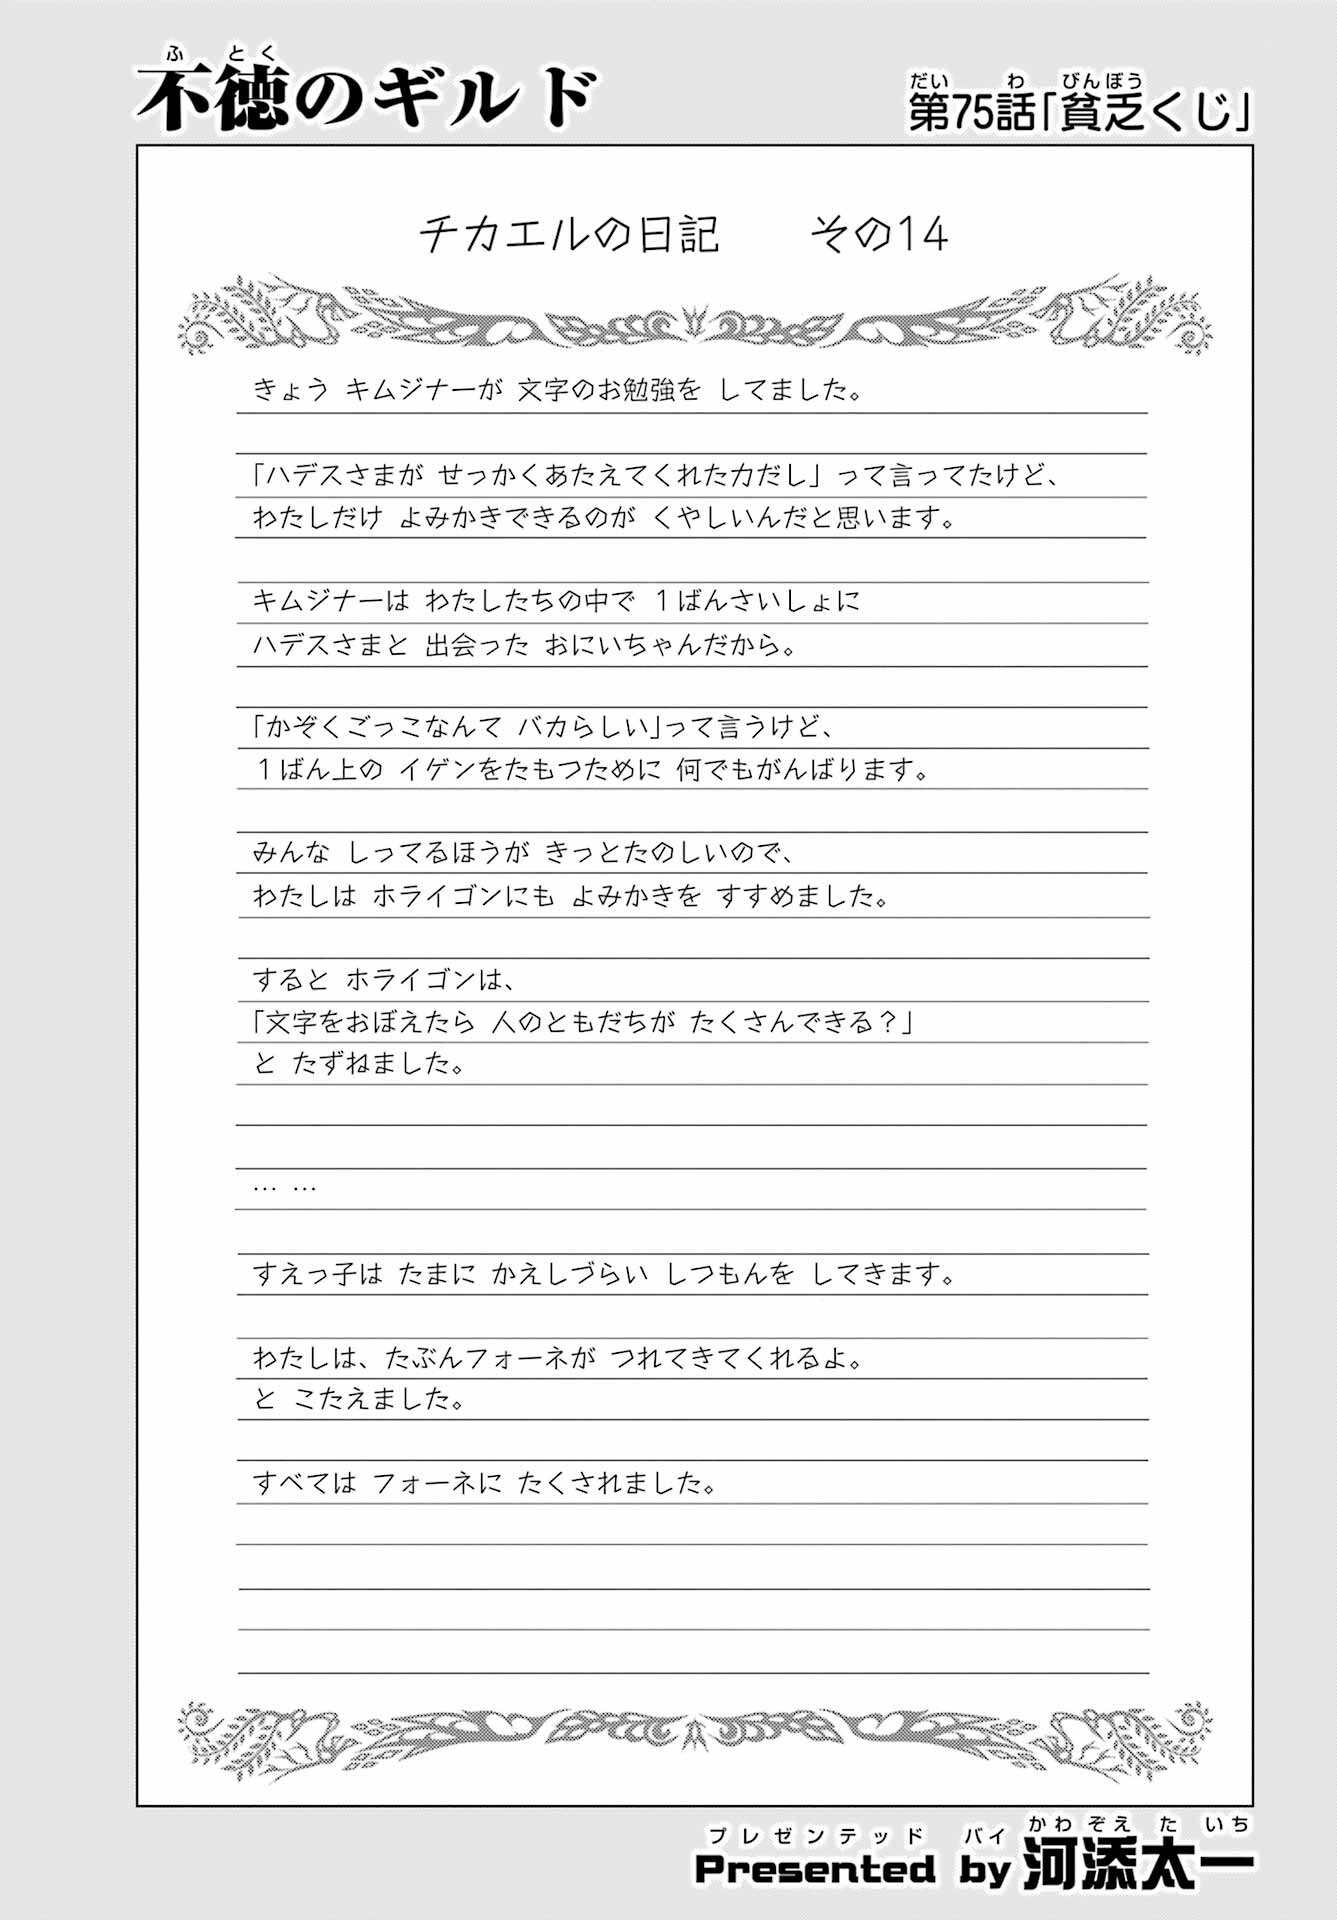 ふとく
不徳のギルド
だい わ びんぼう
第75話「貧乏くじ」
チカエルの日記 その14
きょう キムジナーが 文字のお勉強を してました。
「ハデスさまが せっかくあたえてくれた力だし」 って言ってたけど、
わたしだけ よみかきできるのが くやしいんだと思います。
キムジナーは わたしたちの中で 1ばんさいしょに
ハデスさまと 出会った おにいちゃんだから。
「かぞくごっこなんて バカらしい」って言うけど、
1ばん上の イゲンをたもつために 何でもがんばります。
みんな しってるほうが きっとたのしいので、
わたしは ホライゴンにも よみかきを すすめました。
すると ホライゴンは、
「文字をおぼえたら 人のともだちが たくさんできる？」
と たずねました。
… …
すえっ子は たまに かえしづらい しつもんを してきます。
わたしは、たぶんフォーネが つれてきてくれるよ。
と こたえました。
すべては フォーネに たくされました。
プレゼンテッド バイ かわぞえ た いち
Presented by 河添太一